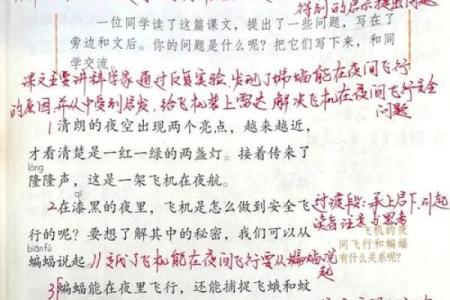 得到的启示 提出问题
一位同学读了这篇课文，提出了一些问题，写在了
旁边和文后。你的问题是什么呢？把它们写下来，和同
学交流。
课文主要讲科学家通过反复实验，发现了蝙蝠能在夜间飞行
的原因，并从中受到启发，给飞机装上雷达 解决飞机在夜间飞行安全
问题
1 清朗的夜空出现两个亮点，越来越近，
才看清楚是一红一绿的两盏灯。接着传来了
lóng
隆隆声，这是一架飞机在夜航。
qī
2 在漆黑的夜里，飞机是怎么做到安全飞
过渡段：承上启下，引起
读者注意与思考
行的呢？要想了解其中的秘密，我们可以从
飞机的夜
间飞行和蝙蝠
有什么关系呢？
biānfú
蝙蝠说起。
说了飞机能在夜间飞行要从蝙蝠说
起
3 蝙蝠能在夜里飞行，还能捕捉飞蛾和蚊